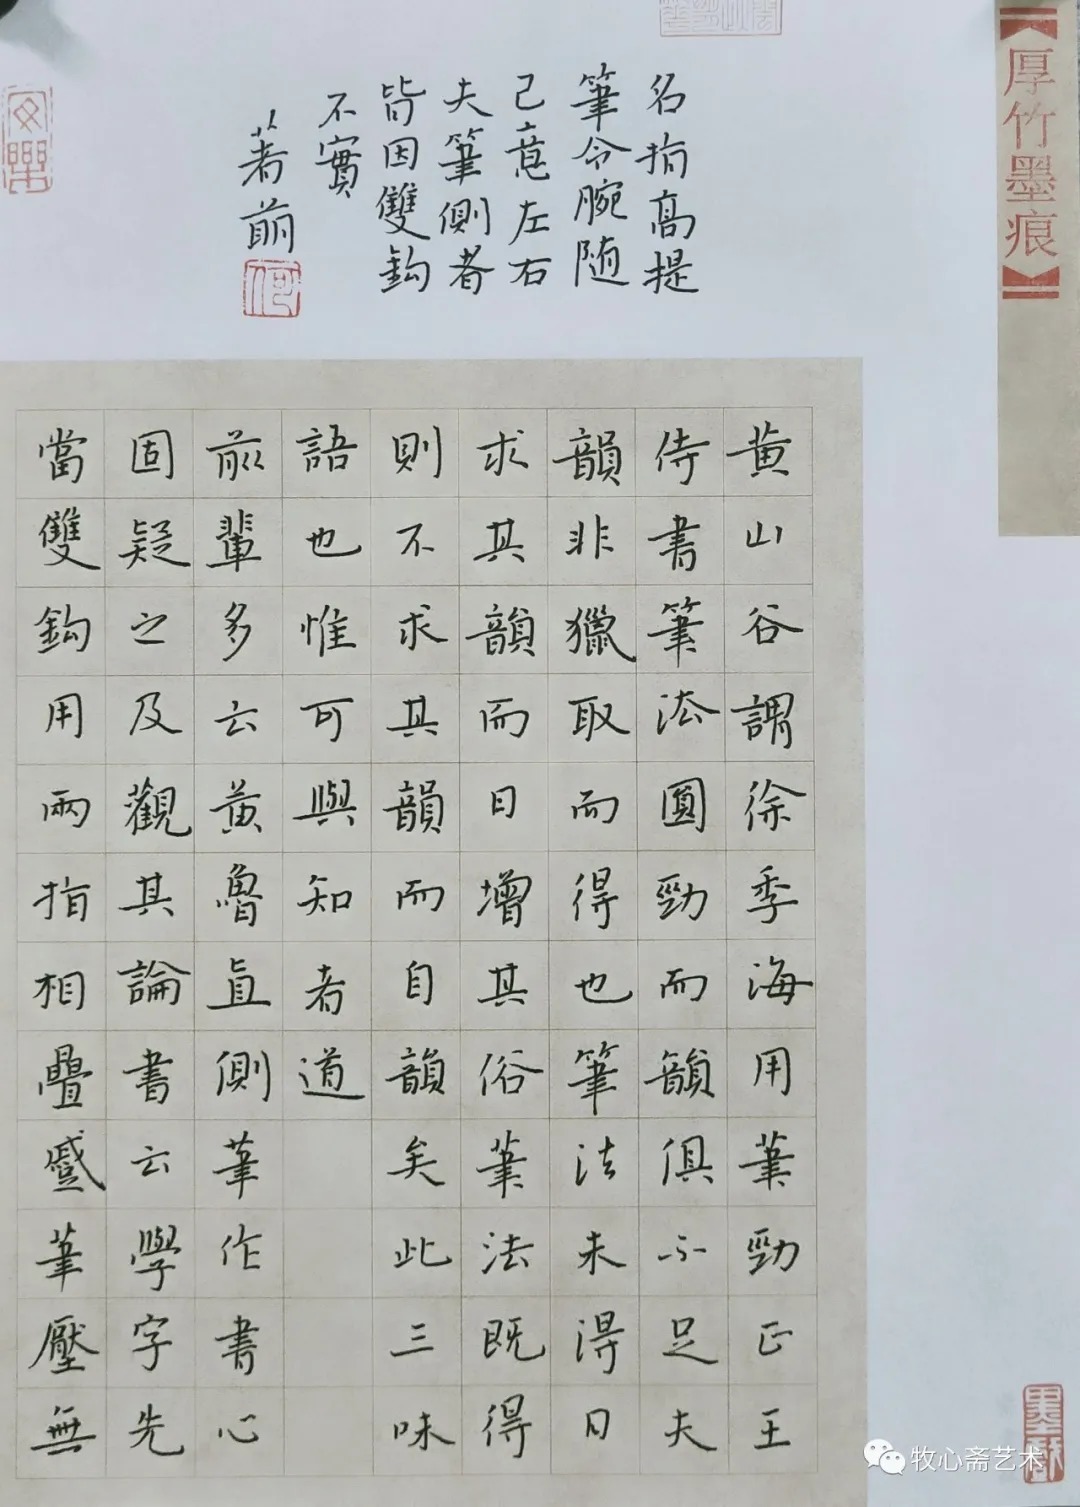 厚竹墨痕
黄山谷謂徐季海用筆勁正王
侍書筆法圓勁而韻俱不足夫
韻非獵取而得也筆法未得日
求其韻而日增其俗筆法既得
則不求其韻而自韻矣此三味
語也惟可與知者道
前輩多云黄魯直側筆作書心
固疑之及觀其論書云學字先
當雙鈎用兩指相疊蹙筆壓無
名指高提
筆令腕随
己意左右
夫筆側者
皆因雙鈎
不實
牧心斋艺术